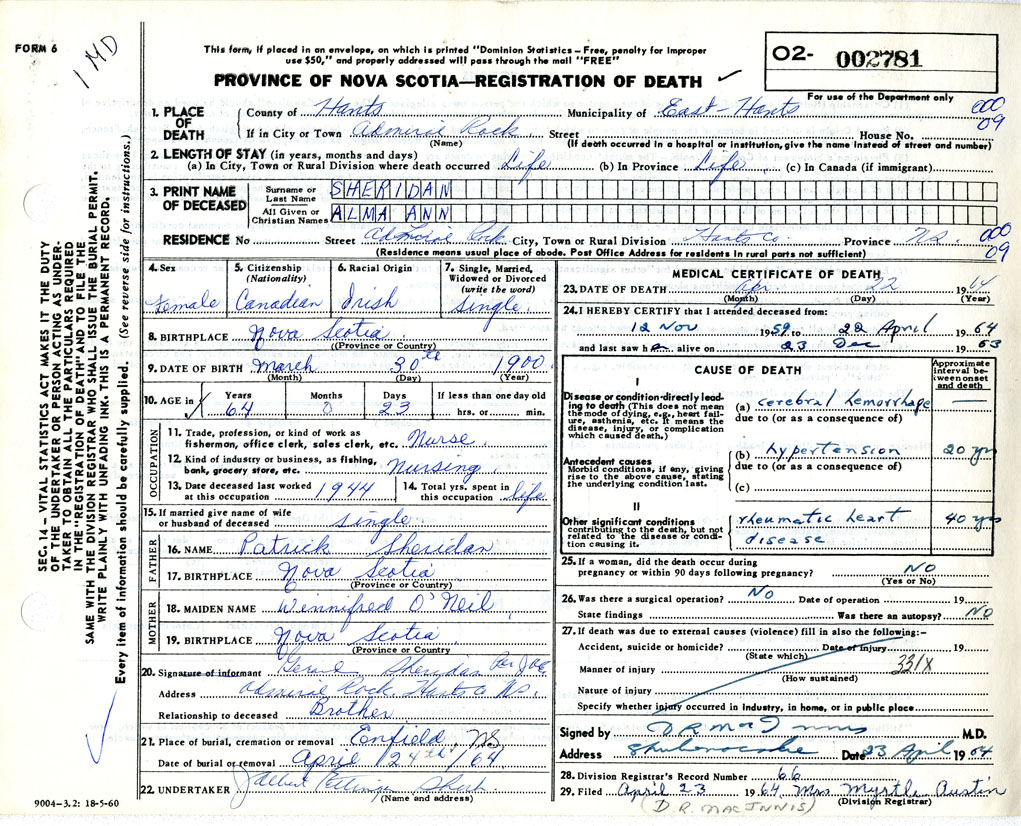 FORM 6
1 MD
This form, if placed in an envelope, on which is printed "Dominion Statistics – Free, penalty for improper
use $50," and properly addressed will pass through the mail "FREE"
PROVINCE OF NOVA SCOTIA—REGISTRATION OF DEATH ✓
O2- 002781
For use of the Department only
1. PLACE OF DEATH County of Hants Municipality of East-Hants 000
If in City or Town Admiral Rock Street House No. 09
(Name) (If death occurred in a hospital or institution, give the name instead of street and number)
2. LENGTH OF STAY (in years, months and days)
(a) In City, Town or Rural Division where death occurred Life (b) In Province Life (c) In Canada (if immigrant)
3. PRINT NAME OF DECEASED Surname or Last Name SHERIDAN
All Given or Christian Names ALMA ANN
RESIDENCE No Street Admiral Rock City, Town or Rural Division Hants Co. Province NS. 000
09
(Residence means usual place of abode. Post Office Address for residents in rural parts not sufficient)
4. Sex 5. Citizenship (Nationality) 6. Racial Origin 7. Single, Married, Widowed or Divorced (write the word)
Female Canadian Irish Single.
8. BIRTHPLACE Nova Scotia
(Province or Country)
9. DATE OF BIRTH March 30th 1900
(Month) (Day) (Year)
10. AGE in Years Months Days If less than one day old
64 0 23 hrs. or min.
OCCUPATION
11. Trade, profession, or kind of work as
fisherman, office clerk, sales clerk, etc. Nurse
12. Kind of industry or business, as fishing,
bank, grocery store, etc. Nursing
13. Date deceased last worked at this occupation 1944 14. Total yrs. spent in this occupation life
15. If married give name of wife
or husband of deceased single
FATHER
16. NAME Patrick Sheridan
17. BIRTHPLACE Nova Scotia
(Province or Country)
MOTHER
18. MAIDEN NAME Winnifred O'Neil
19. BIRTHPLACE Nova Scotia
(Province or Country)
20. Signature of informant Sheridan
Address Admiral Rock Hants Co NS.
Relationship to deceased Brother
21. Place of burial, cremation or removal Enfield NS
Date of burial or removal April 24th/64
22. UNDERTAKER Ettinger
(Name and address)
MEDICAL CERTIFICATE OF DEATH
23. DATE OF DEATH Apr 22 1964
(Month) (Day) (Year)
24. I HEREBY CERTIFY that I attended deceased from:
12 Nov 1959 to 22 April 1964
and last saw her alive on 23 Dec 1963
CAUSE OF DEATH Approximate interval between onset and death
I
Disease or condition directly leading to death (This does not mean the mode of dying, e.g., heart failure, asthenia, etc. It means the disease, injury, or complication which caused death.)
(a) cerebral hemorrhage —
due to (or as a consequence of)
Antecedent causes
Morbid conditions, if any, giving rise to the above cause, stating the underlying condition last.
(b) hypertension 20 yrs
due to (or as a consequence of)
(c)
II
Other significant conditions contributing to the death, but not related to the disease or condition causing it.
rheumatic heart 40 yrs
disease
25. If a woman, did the death occur during
pregnancy or within 90 days following pregnancy? NO
(Yes or No)
26. Was there a surgical operation? NO Date of operation 19
State findings Was there an autopsy? NO
27. If death was due to external causes (violence) fill in also the following:—
Accident, suicide or homicide? Date of injury 19
(State which)
Manner of injury 331X
(How sustained)
Nature of injury
Specify whether injury occurred in industry, in home, or in public place
Signed by D R MacInnis M.D.
Address Shubenacadie Date 23 April 1964
28. Division Registrar's Record Number 66
29. Filed April 23 1964 Mrs Myrtle Austin
(D.R. MACINNIS) (Division Registrar)
SEC. 14 – VITAL STATISTICS ACT MAKES IT THE DUTY
OF THE UNDERTAKER OR PERSON ACTING AS UNDER-
TAKER TO OBTAIN ALL THE PARTICULARS REQUIRED
IN THE "REGISTRATION OF DEATH" AND TO FILE THE
SAME WITH THE DIVISION REGISTRAR WHO SHALL ISSUE THE BURIAL PERMIT.
WRITE PLAINLY WITH UNFADING INK. THIS IS A PERMANENT RECORD.
Every item of information should be carefully supplied. (See reverse side for instructions.)
9004–3.2: 18-5-60